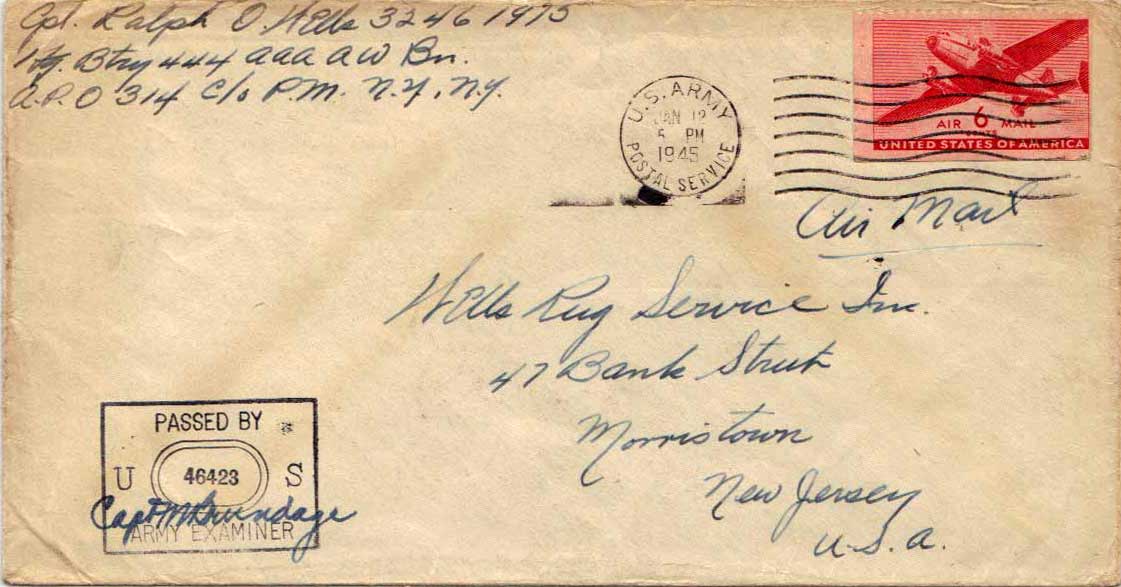 Cpl. Ralph O. Wells 32461975
Hq. Btry 444 AAA AW Bn.
A.P.O 314 c/o P.M. N.Y., N.Y.
U.S. ARMY
JAN 12
5 PM
1945
POSTAL SERVICE
AIR 6 MAIL
CENTS
UNITED STATES OF AMERICA
Air Mail
Wells Rug Service Inc.
47 Bank Street
Morristown
New Jersey
U.S.A.
PASSED BY
U 46423 S
Capt
ARMY EXAMINER